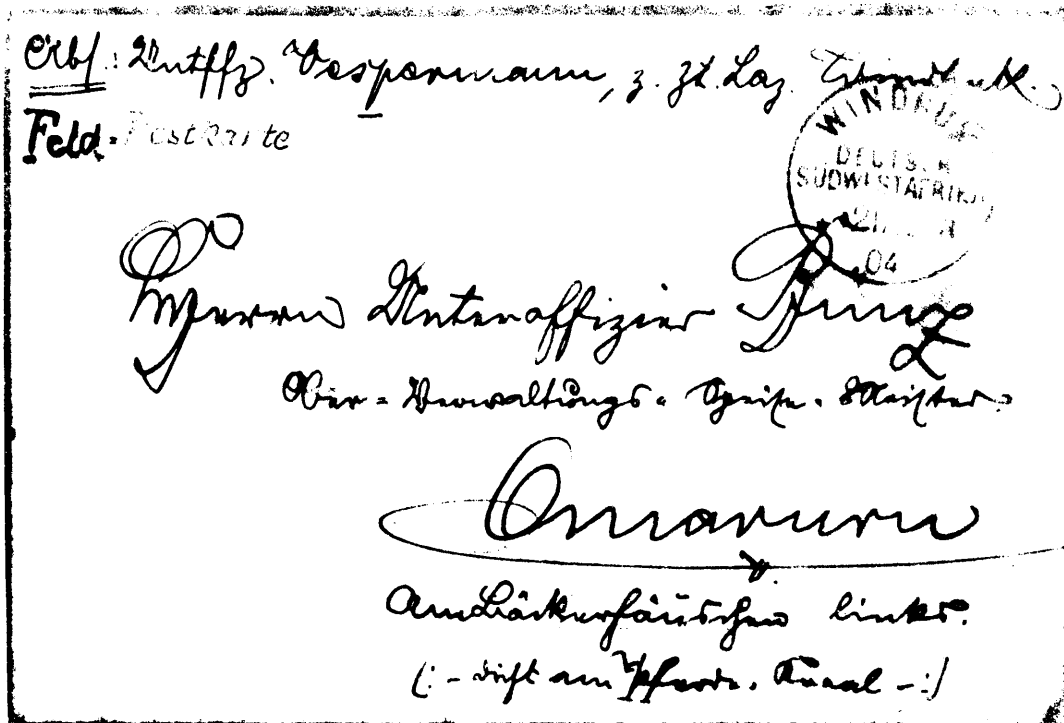 Abs.: Untffz. Vespermann, z. Zt. Laz. Windhuk.
Feld-Postkarte
WINDHUK
DEUTSCH
SÜDWESTAFRIKA
04
Herrn Unteroffizier
Ober-Verwaltungs-Speise-Meister.
Omaruru
Am Bäckerhäuschen links.
(:- dicht am Pferde-Kraal -:)